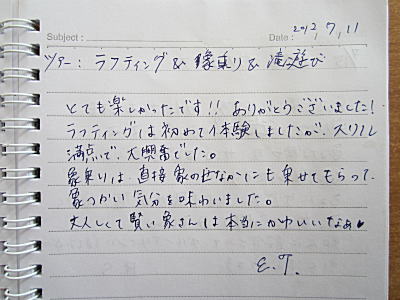 Subject :
Date : 2012, 7, 11
ツアー: ラフティング & 象乗り & 滝遊び
とても楽しかったです!! ありがとうございました!
ラフティングは初めて体験しましたが、スリル
満点で、大興奮でした。
象乗りは、直接象の背なかにも乗せてもらって、
象つかい気分を味わいました。
大人しくて賢い象さんは本当にかわいいなぁ♥
E.T.